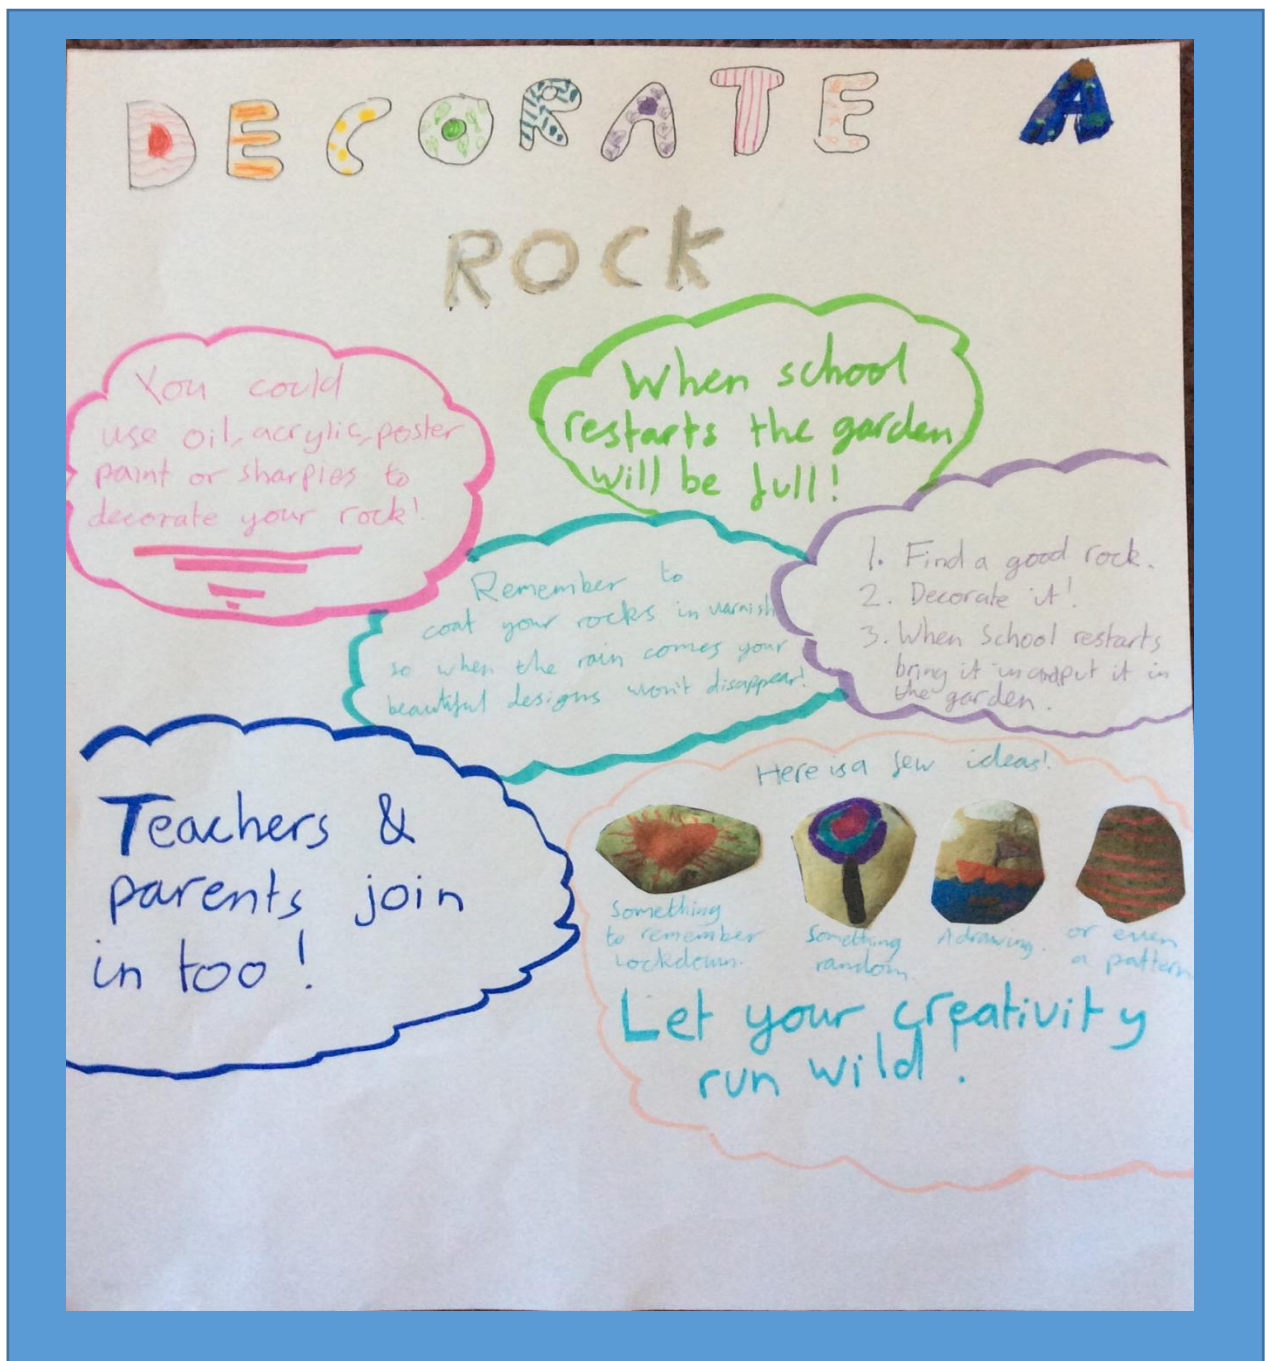 DECORATE A
ROCK
You could
use oil, acrylic, poster
paint or sharpies to
decorate your rock!
When school
restarts the garden
will be full!
Remember to
coat your rocks in varnish
so when the rain comes your
beautiful designs won't disappear!
1. Find a good rock.
2. Decorate it!
3. When School restarts
bring it in and put it in
the garden.
Teachers &
parents join
in too!
Here is a few ideas!
Something
to remember
lockdown.
Something
random
A drawing.
or even
a pattern
Let your creativity
run wild!